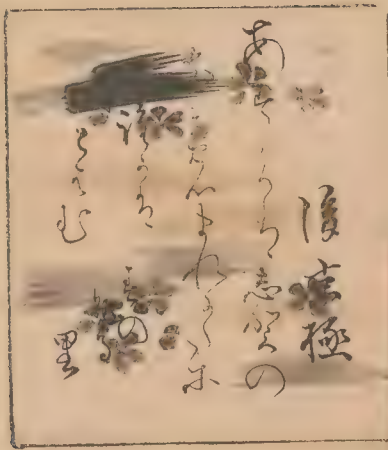 後京極
あすよりは志賀の
花そのまれにたに
誰かは
とはむ
春の
ふる
里